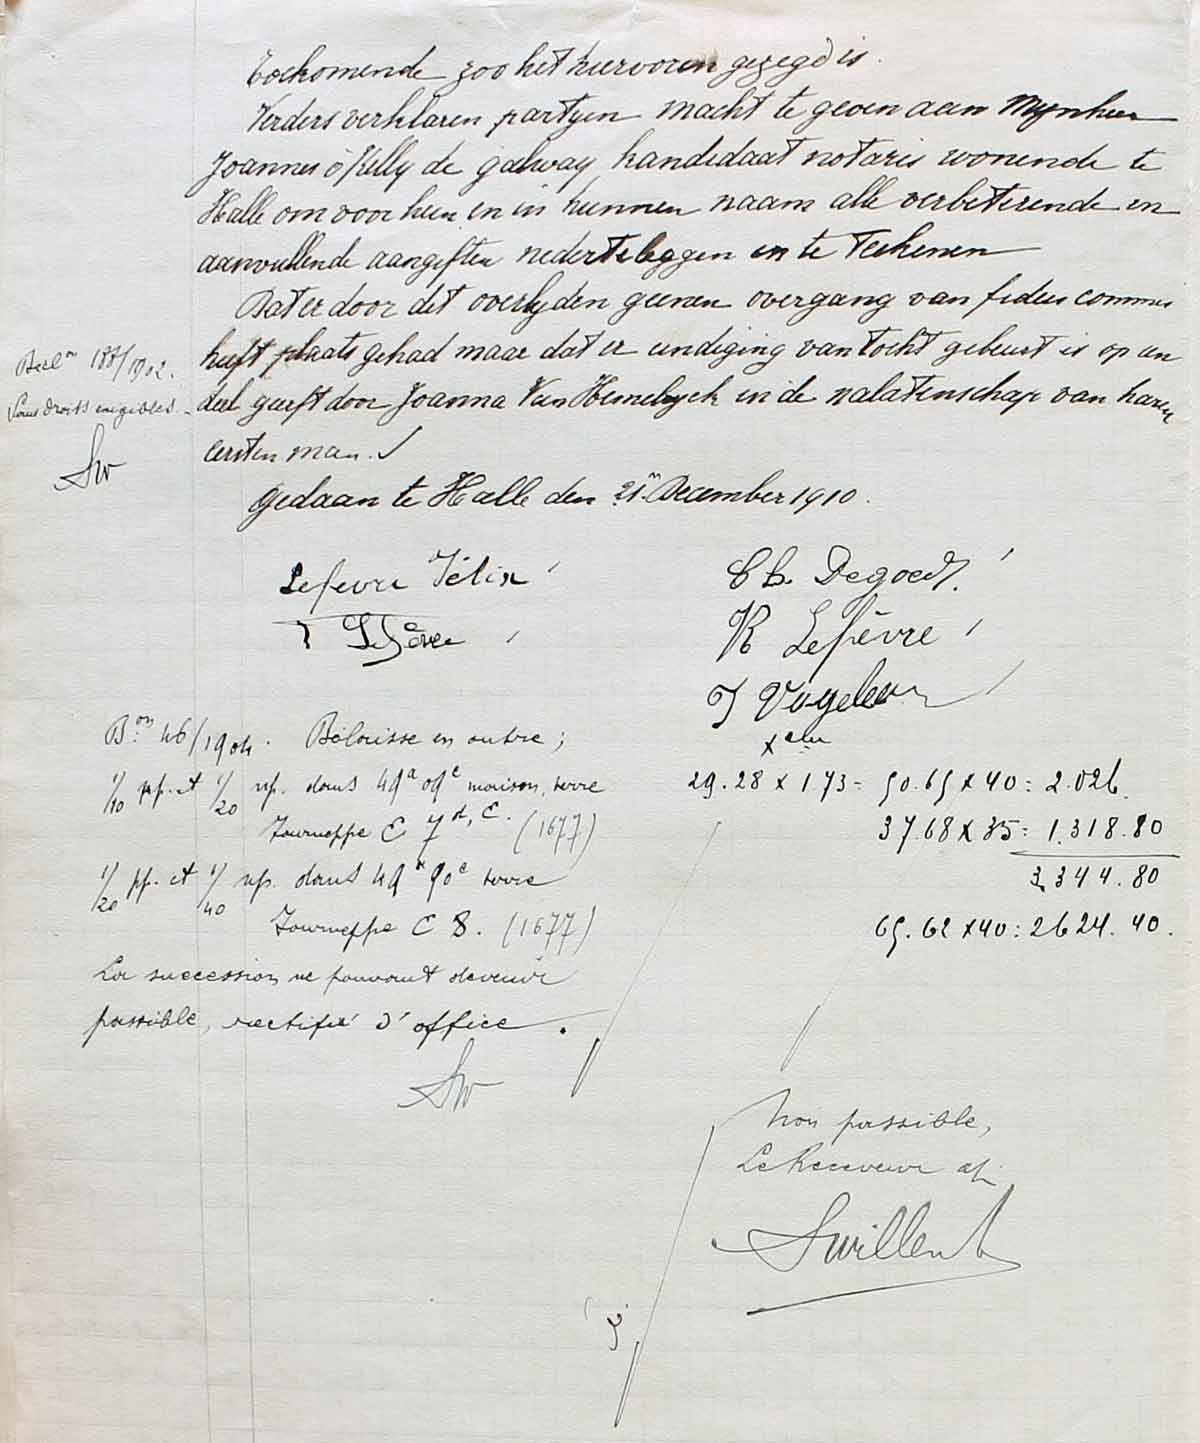 Toekomende zoo het hiervoren gezegd is.
Verders verklaren partyen macht te geven aan Mynheer
Joannes ó Kelly de galway, kandidaat notaris wonende te
Halle om voor hun en in hunnen naam alle verbeterende en
aanvullende aangiften nederteleggen en te teekenen
Dat er door dit overlyden geenen overgang van fidei commis
heeft plaats gehad maar dat er eindiging van tocht gebeurt is op een
deel geerft door Joanna Van Hemelryck in de nalatenschap van haren
eersten man.
Gedaan te Halle den 21n December 1910.
Decl.on 188/1902.
Sans droits exigibles.
Sw
Lefevre Félix
Ch. Degoedt.
Lefèvre
R Lefèvre
J Vogeleer
Bon 46/1904. Délaisse en outre;
1/10 pp. et 1/20 np. dans 49a 09c maison, terre
29.28 x 173 = 50.65 x 40 = 2.026.
Tourneppe C 7d, C. (1677)
37.68 x 35 = 1.318.80
1/20 pp. et 1/40 np. dans 49a 90c terre
3.344.80
Tourneppe C 8. (1677)
65.62 x 40 = 2624.40.
La succession ne pouvant devenir
passible, rectifié d'office.
Sw
Non passible,
Le Receveur
Swillent